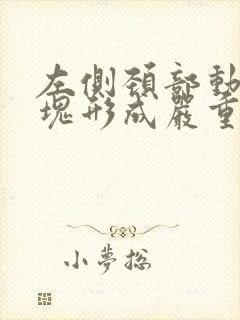 左側頚部動
塊形成嚴重
小夢總